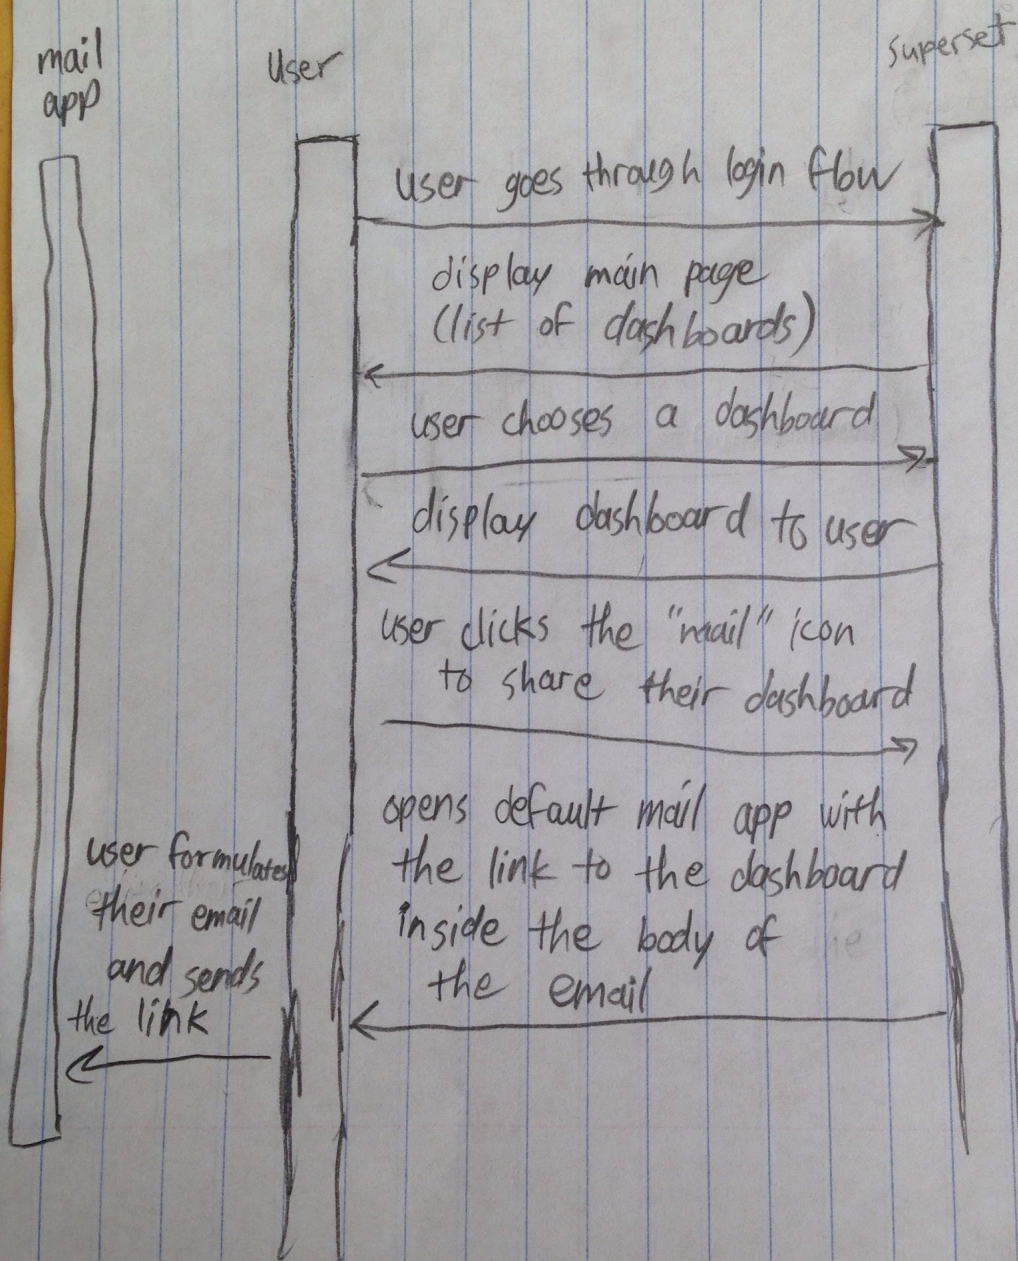 mail
app
User
superset
user goes through login flow
display main page
(list of dashboards)
user chooses a dashboard
display dashboard to user
user clicks the "mail" icon
to share their dashboard
opens default mail app with
the link to the dashboard
inside the body of
the email
user formulates
their email
and sends
the link